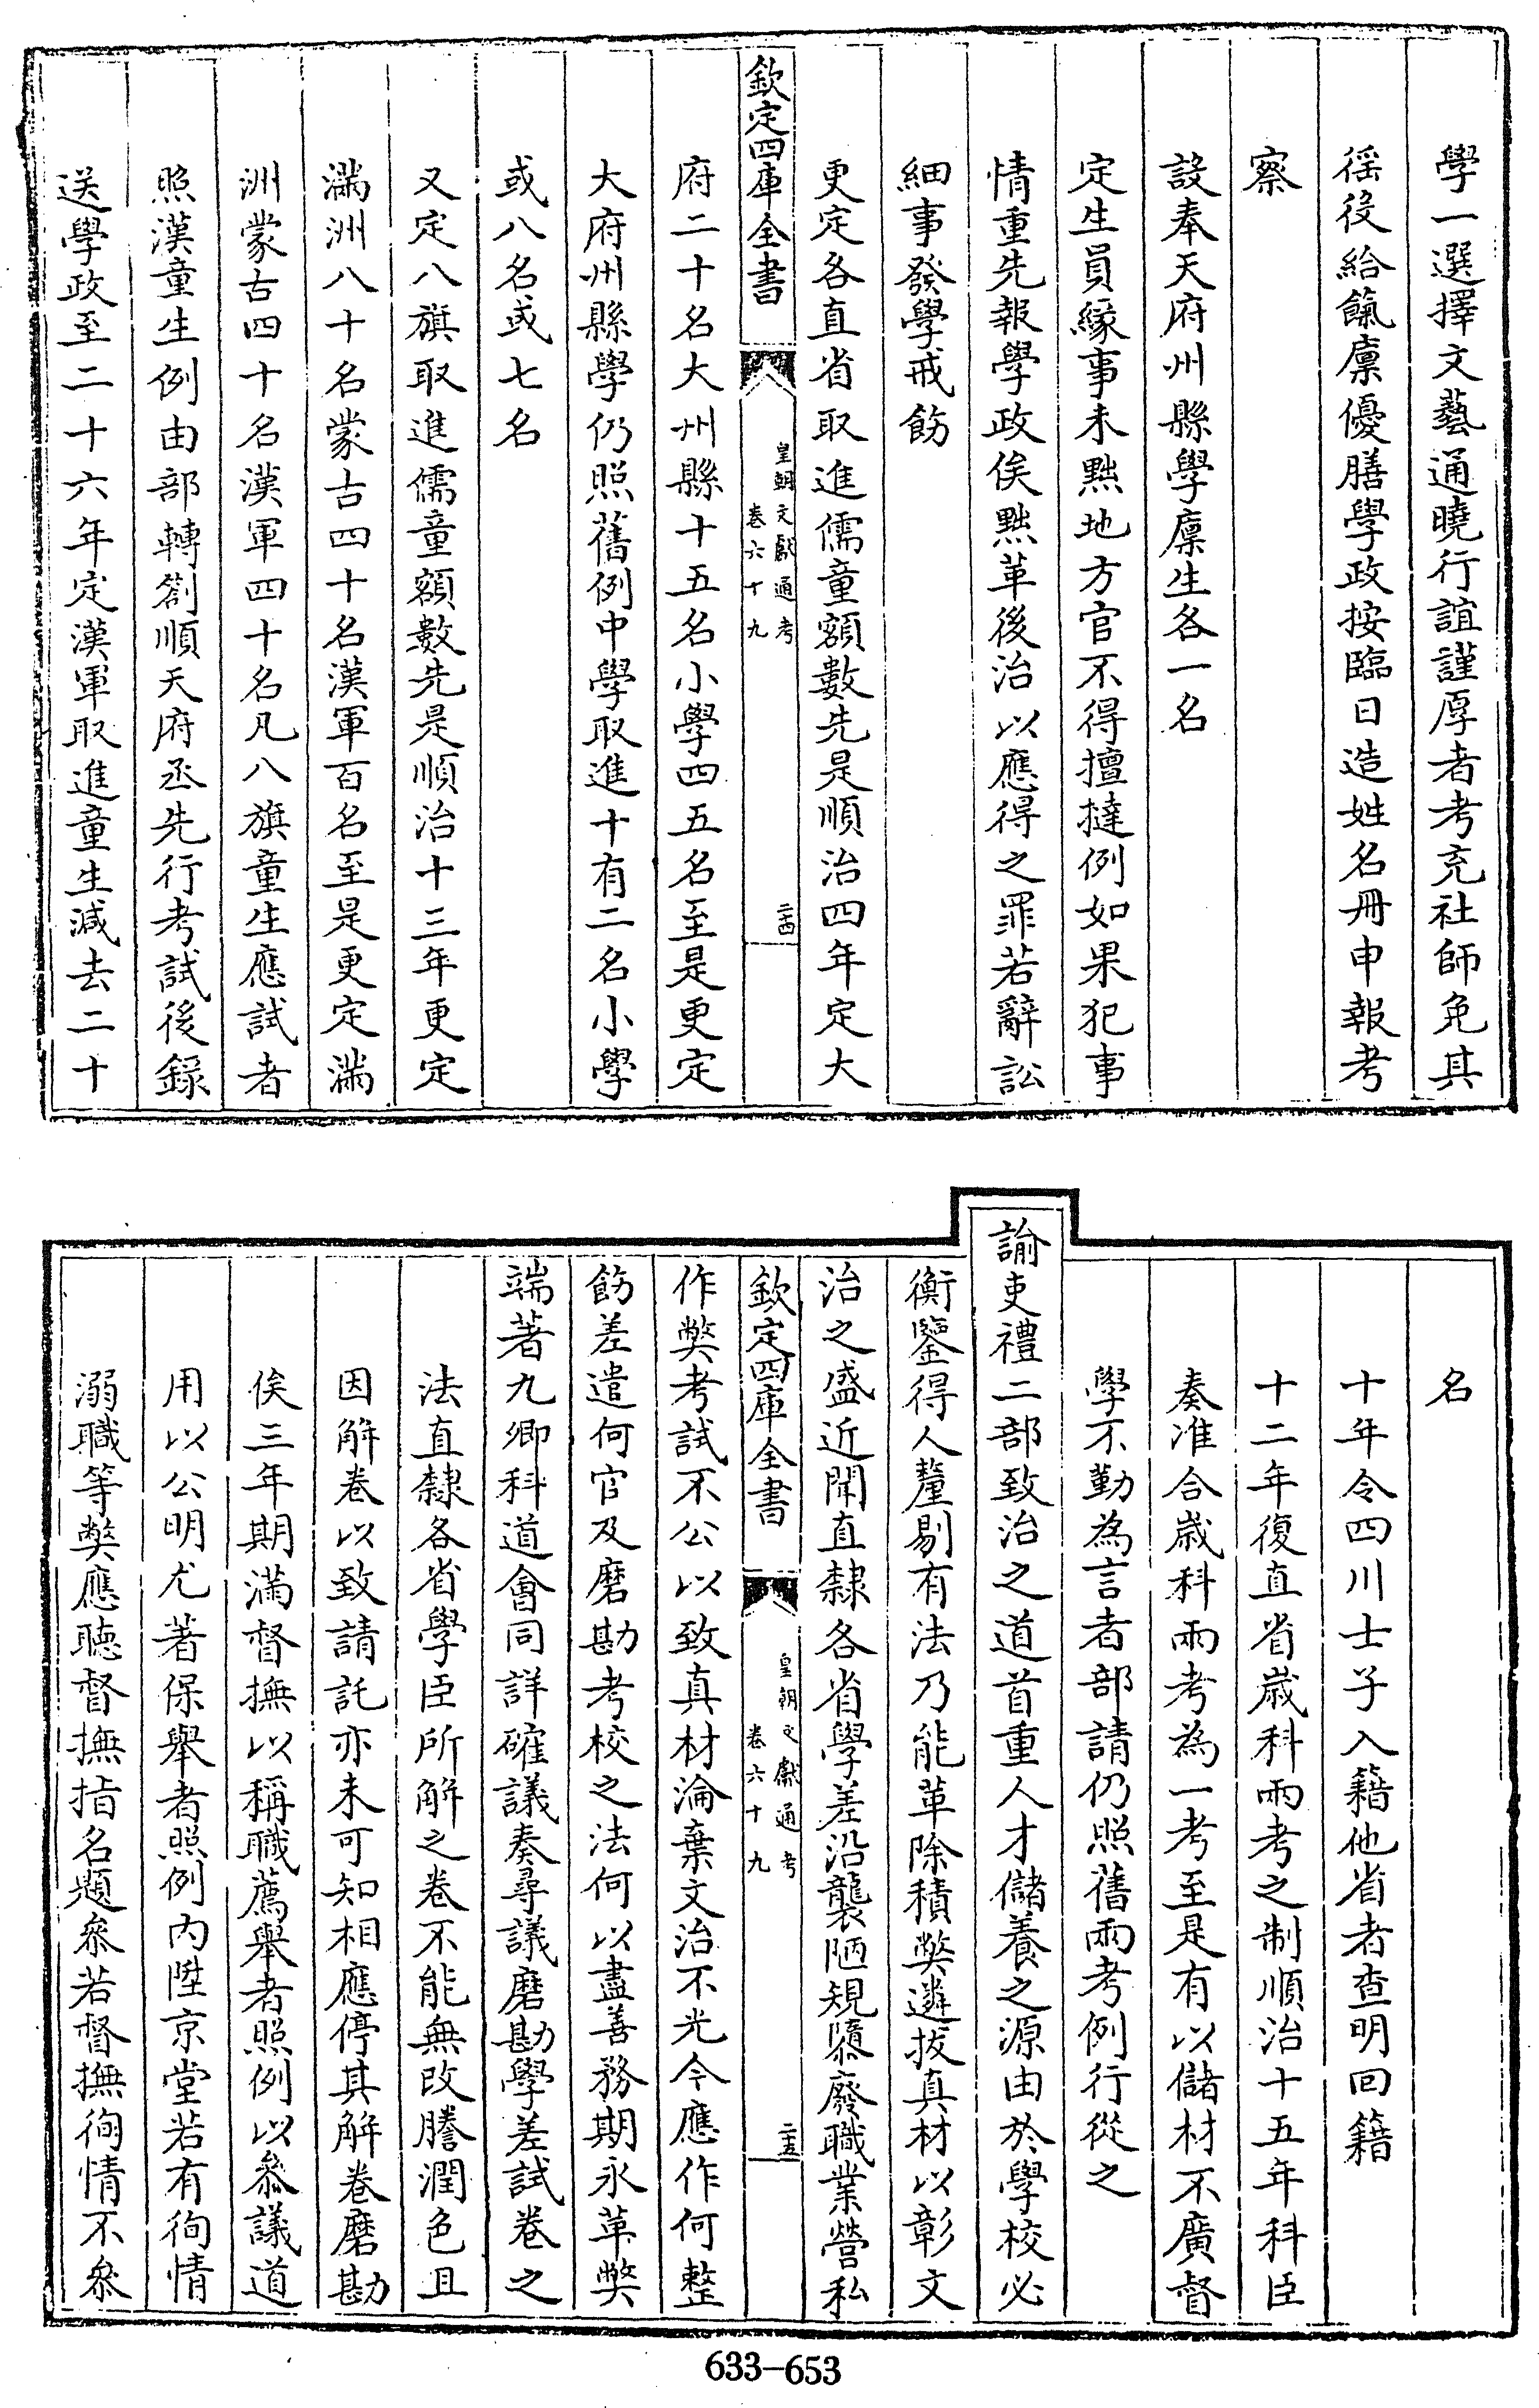 學一選擇文藝通曉行誼謹厚者考充社師免其
徭役給餼廩優膳學政按臨日造姓名冊申報考
察
設奉天府州縣學廩生各一名
定生員緣事未黜地方官不得擅撻例如果犯事
情重先報學政俟黜革後治以應得之罪若辭訟
細事發學戒飭
更定各直省取進儒童額數先是順治四年定大
欽定四庫全書
皇朝文獻通考
卷六十九
二十四
府二十名大州縣十五名小學四五名至是更定
大府州縣學仍照舊例中學取進十有二名小學
或八名或七名
又定八旗取進儒童額數先是順治十三年更定
滿洲八十名蒙古四十名漢軍百名至是更定滿
洲蒙古四十名漢軍四十名凡八旗童生應試者
照漢童生例由部轉劄順天府丞先行考試後錄
送學政至二十六年定漢軍取進童生減去二十
名
十年令四川士子入籍他省者查明回籍
十二年復直省歲科兩考之制順治十五年科臣
奏准合歲科兩考為一考至是有以儲材不廣督
學不勤為言者部請仍照舊兩考例行從之
諭吏禮二部致治之道首重人才儲養之源由於學校必
衡鑒得人釐剔有法乃能革除積弊遴拔真材以彰文
治之盛近聞直隸各省學差沿襲陋規隳廢職業營私
欽定四庫全書
皇朝文獻通考
卷六十九
二十五
作弊考試不公以致真材淪棄文治不光今應作何整
飭差遣何官及磨勘考校之法何以盡善務期永革弊
端著九卿科道會同詳確議奏尋議磨勘學差試卷之
法直隸各省學臣所解之卷不能無改謄潤色且
因解卷以致請託亦未可知相應停其解卷磨勘
俟三年期滿督撫以稱職薦舉者照例以叅議道
用以公明尤著保舉者照例內陞京堂若有徇情
溺職等弊應聽督撫指名題叅若督撫徇情不叅
633-653